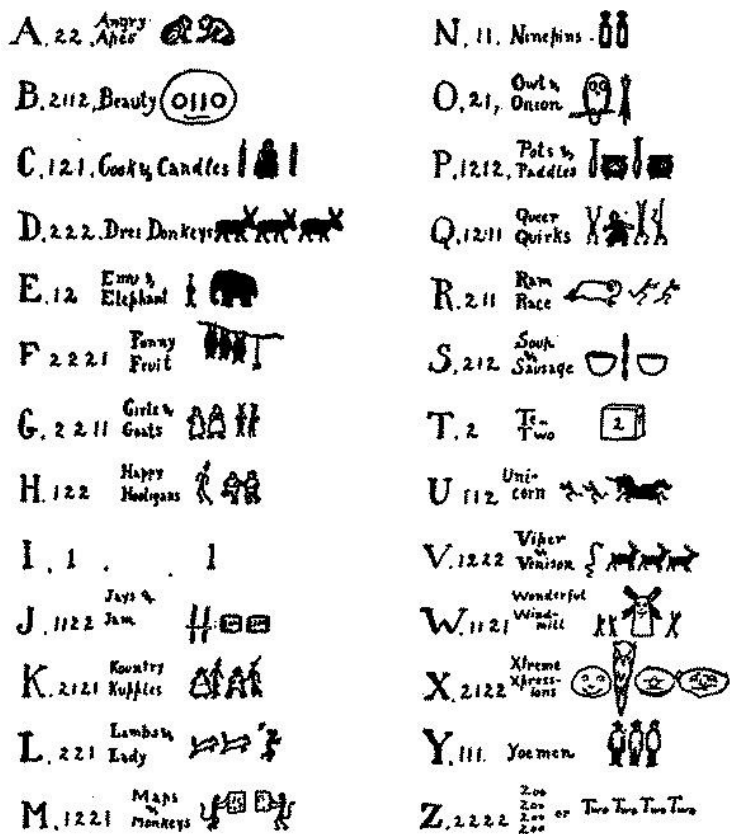 A.22. Angry
Apes
B.2112, Beauty
O11O
C.121. Cook & Candles
D.222. Drei Donkeys
E.12 Emu &
Elephant
F 2221 Funny
Fruit
G. 2211 Girls &
Goats
H.122 Happy
Hooligans
I . 1 . . 1
J.1122 Jays &
Jam
K.2121 Kountry
Kupples
L.221 Lambs &
Lady
M.1221 Maps
&
Monkeys
N. 11. Ninepins.
O.21, Owl &
Onion
P.1212, Pots &
Paddles
Q.1211 Queer
Quirks
R.211 Ram
Race
S.212 Soup
&
Sausage
T.2 Te-
Two
2
U 112 Uni-
corn
V.1222 Viper
&
Venison
W.1121 Wonderful
Wind-
mill
X.2122 Xtreme
Xpress-
ions
Y.111. Yoemen
Z.2222 Zoo
Zoo or Two Two Two Two
Zoo
Zoo